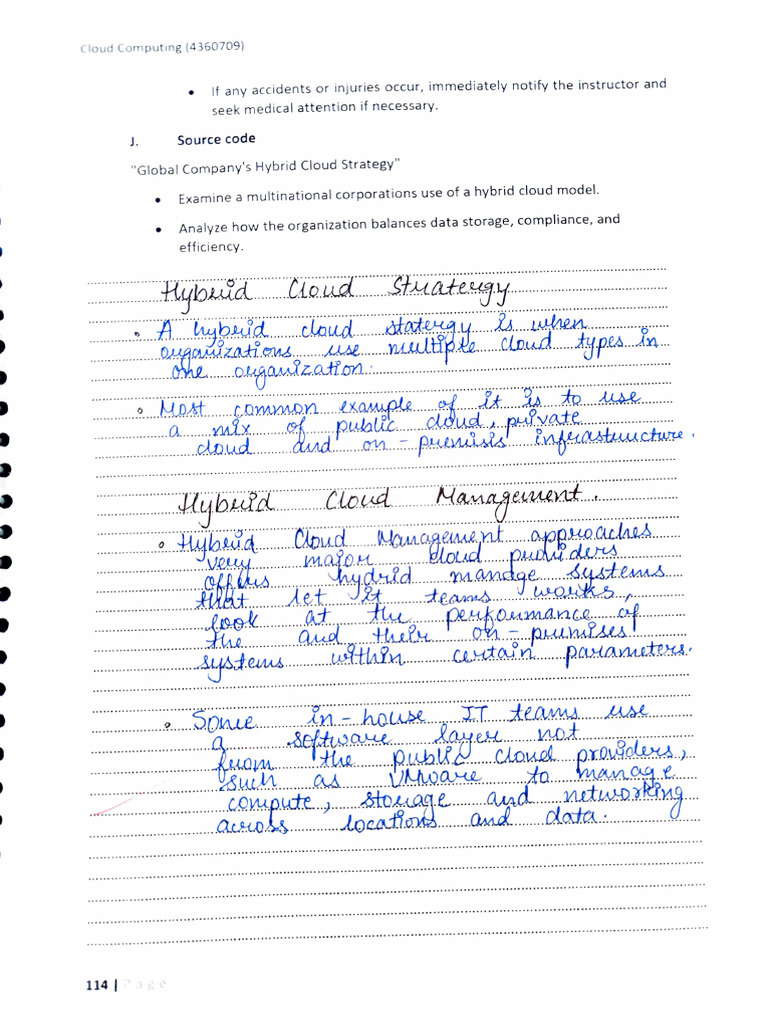 Cloud Computing (4360709)
• If any accidents or injuries occur, immediately notify the instructor and
seek medical attention if necessary.
J. Source code
"Global Company's Hybrid Cloud Strategy"
• Examine a multinational corporations use of a hybrid cloud model.
• Analyze how the organization balances data storage, compliance, and
efficiency.
Hybrid Cloud Stratergy
• A hybrid cloud statergy is when
organizations use multiple cloud types in
one organization.
• Most common example of it is to use
a mix of public cloud, private
cloud and on-premisis infrastructure.
Hybrid Cloud Management.
• Hybrid Cloud Management approaches
very major cloud providers
offers hydrid manage systems
that let it teams works,
look at the performance of
the and their on-premises
systems within certain parameters.
• Some in-house IT teams use
a software layer not
from the public cloud providers,
such as VMware to manage
compute, storage and networking
across locations and data.
114 | Page